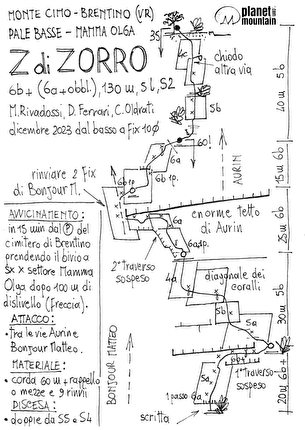 MONTE CIMO - BRENTINO (VR)
PALE BASSE - MAMMA OLGA
planet
mountain
.com
Z di ZORRO
6b+ (6a+obbl.), 130 m, 5L, S2
M. Rivadossi, D. Ferrari, C. Oldrati
dicembre 2023 dal basso a fix 10Ø
35
chiodo
altra via
5b
40 m 5b
60
6a
15 m 6b
rinviare 2 fix
di Bonjour M.
6b+p.
6b
1p.
AURIN
AVVICINAMENTO:
in 15 min dal P del
cimitero di Brentino
prendendo il bivio a
sx x settore Mamma
Olga dopo 100 m di
dislivello (freccia).
enorme tetto
di Aurin
6a
6a
6a+p.
25 m 6b
2° traverso
sospeso
4a
diagonale dei
coralli
5b
5a
30 m 5b
ATTACCO:
• tra le vie Aurin e
Bonjour Matteo.
MATERIALE:
• corda 60 m + rappello
o mezze e 9 rinvii
DISCESA:
• doppie da S5 e S4
BONJOUR MATTEO
6b+
1° traverso
sospeso
5a
1 passo 6a
scritta
20 m 6b+